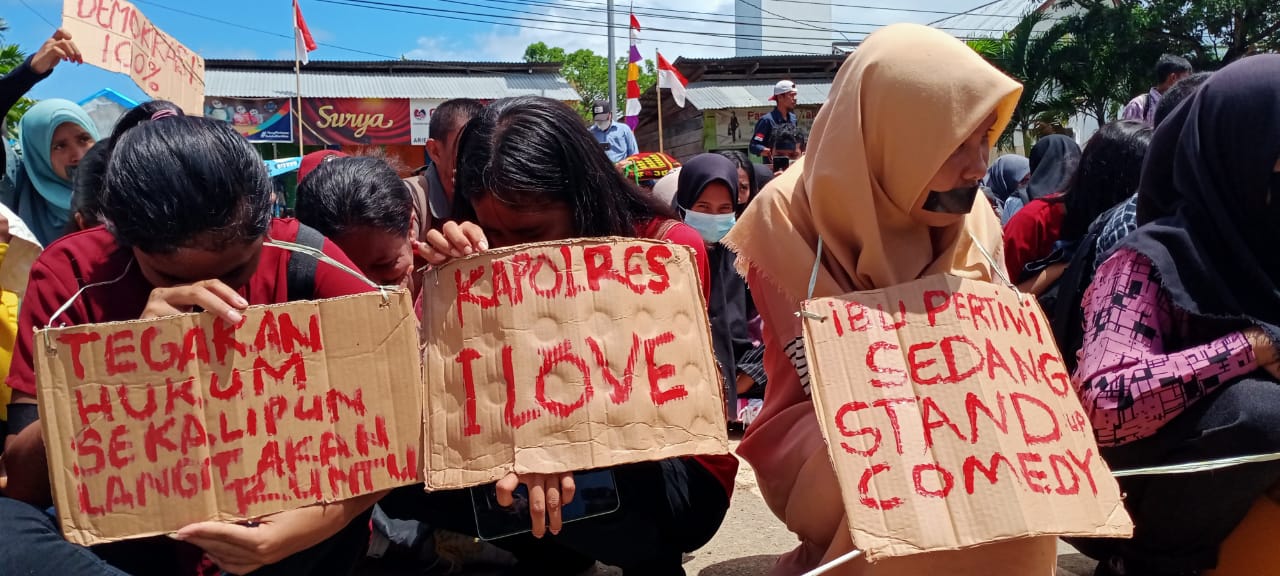 DEMOKRASI
100%
Surya
TEGAKAN
HUKUM
SEKALIPUN
LANGIT AKAN
RUNTUH
KAPOLRES
I LOVE
IBU PERTIWI
SEDANG
STAND UP
COMEDY